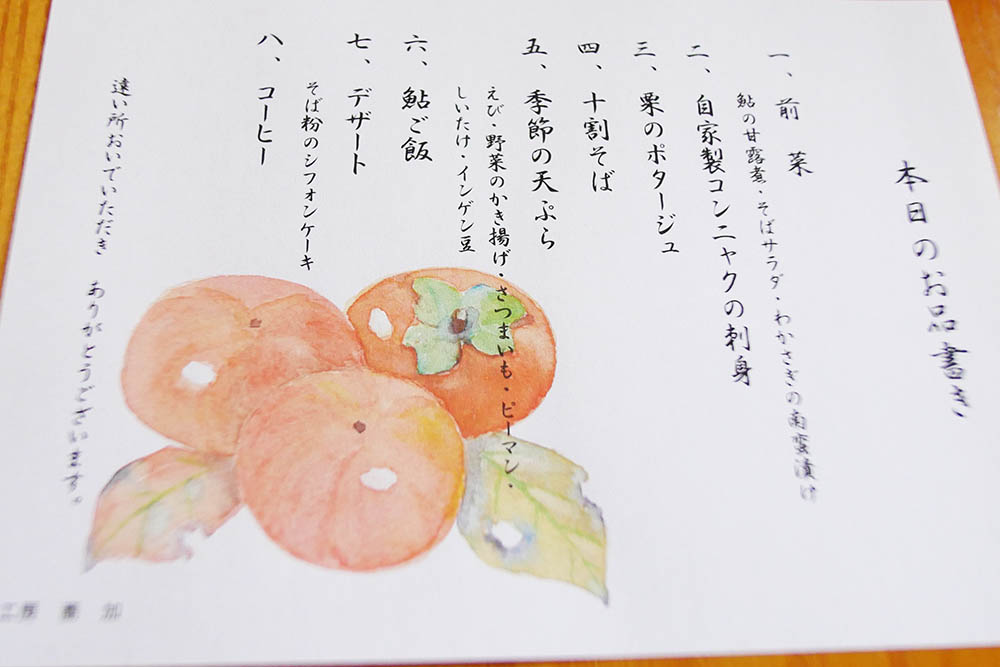 本日のお品書き
一、前菜
鮎の甘露煮・そばサラダ・わかさぎの南蛮漬け
二、自家製コンニャクの刺身
三、栗のポタージュ
四、十割そば
五、季節の天ぷら
えび・野菜のかき揚げ・さつまいも・ピーマン・
しいたけ・インゲン豆
六、鮎ご飯
七、デザート
そば粉のシフォンケーキ
八、コーヒー
遠い所おいでいただき ありがとうございます。